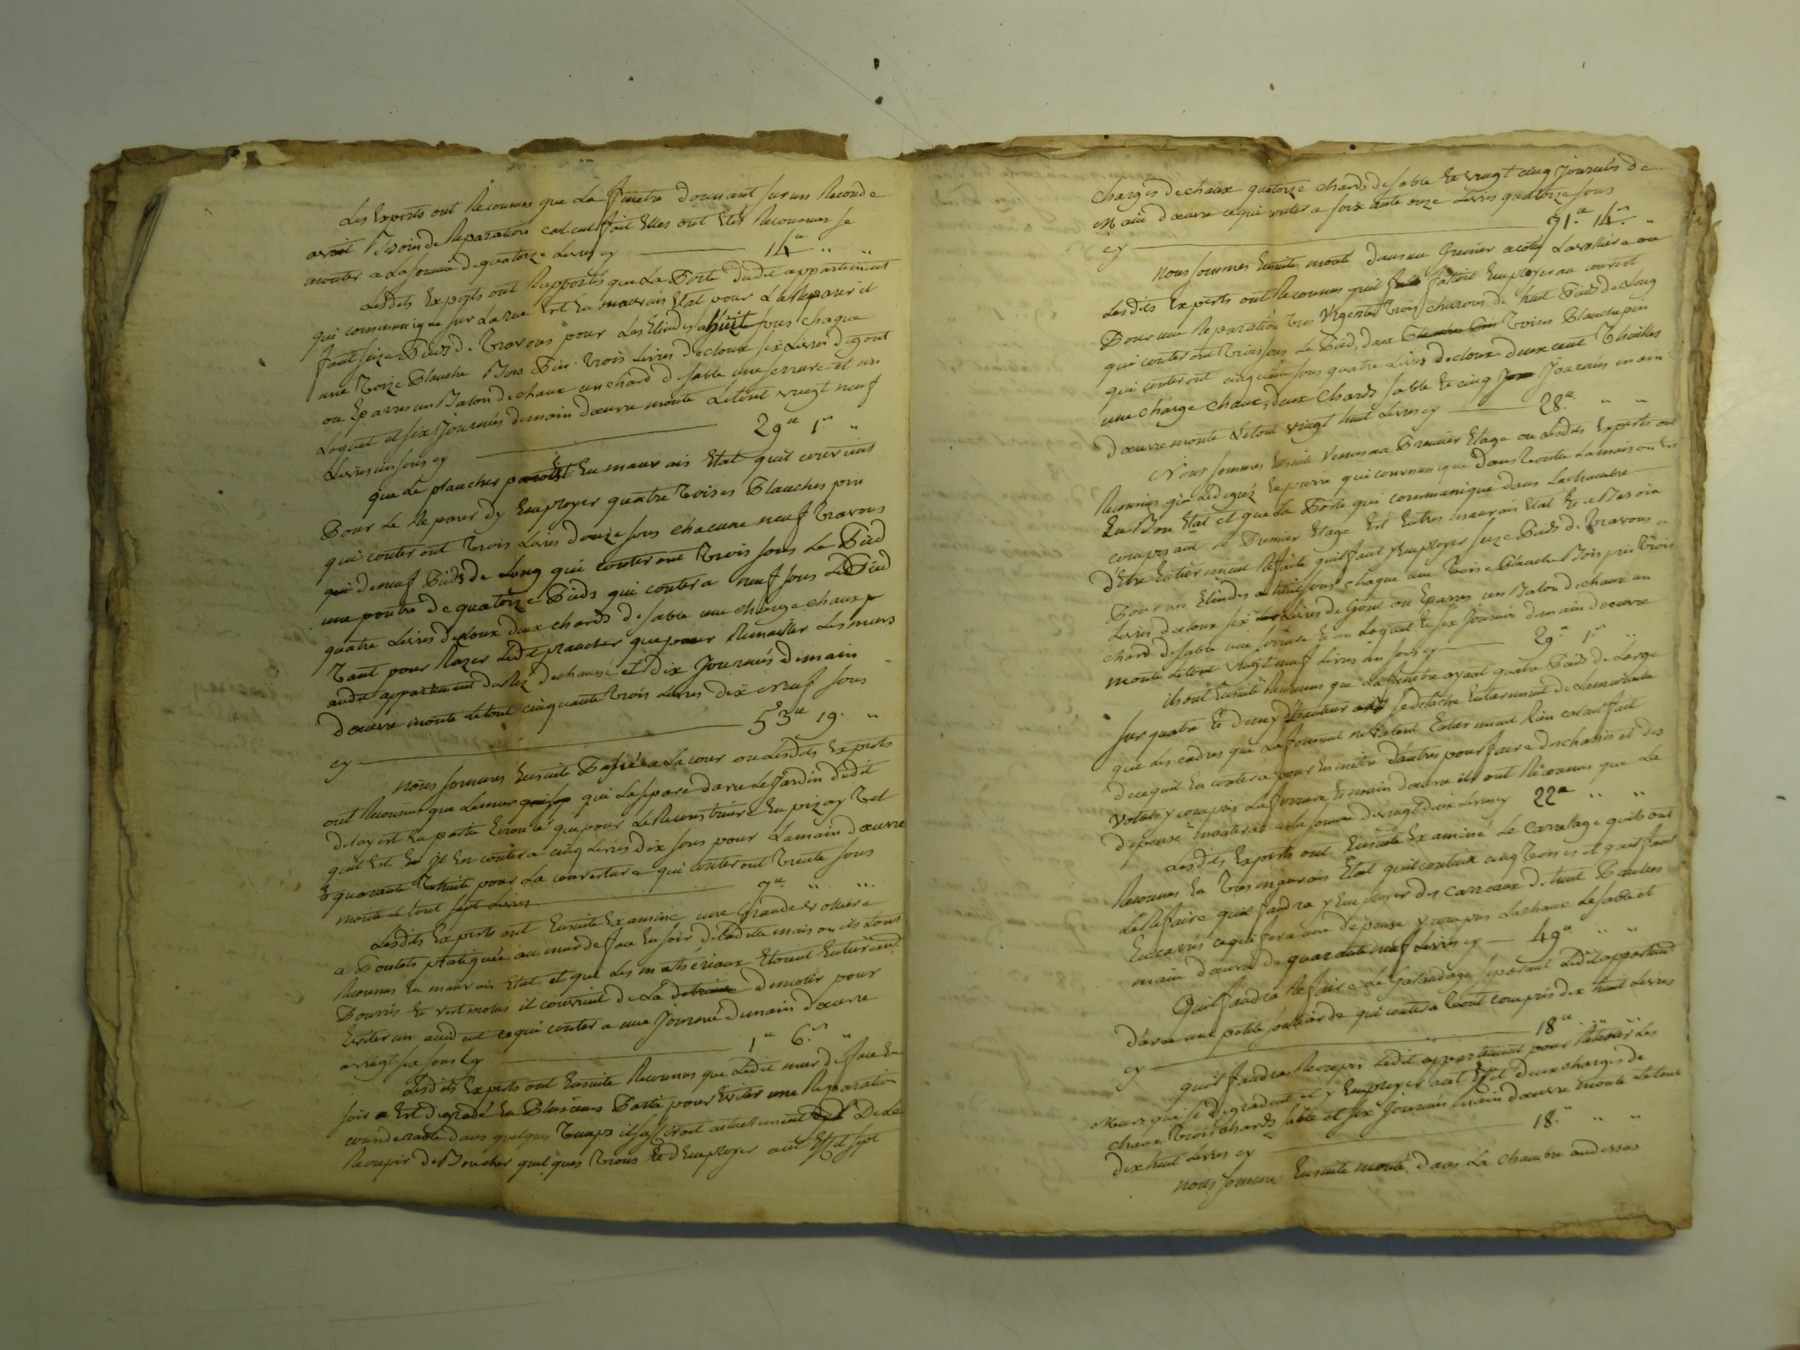 Les Experts ont Reconnus que La fenetre donnant sur un Reconde
avoit Besoin de Reparation calcul fait Elles ont Eté Reconnues se
monter a La somme de quatorze Livres cy 14 " "
Lesdits Experts ont Rapportés que La Porte dudit appartement
qui communique sur La rue Est En mauvais Etat pour La Reparer il
faut seize Pieds de Travons pour Les Elindes a huit sous chaque
une Toize Planche Bois Pin Trois Livres de cloux six Livres de gont
ou Eparres un Baton de chaux un chard de sable une serrure et un
Loquet et six Journés de main d'œuvre monte Le tout vingt neuf
Livres un sous cy 29 1 "
que Le plancher paroist En mauvais Etat qu'il convient
Pour Le Reparer dy Employer quatre Toises Planches pin
qui couteront Trois Livres douze sous chacune neuf Travons
pin de neuf Pieds de Long qui couteront Trois sous Le Pied
une poutre de quatorze Pieds qui coutera neuf sous Le Pied
quatre Livres de cloux deux chards de sable une charge chaux
Tant pour Razer Ledit plancher que pour Remailler Les murs
dudit appartement du Rez dechaussé et dix Journés de main
d'œuvre monte Le tout cinquante Trois Livres dix neuf sous
cy 53 19 "
nous sommes Ensuite Passé a La cour ou Lesdits Experts
ont Reconnu que Le mur qui La separe davec Le Jardin dudit
est En partie Ecroulé que pour Le Reconstruire En pizay Tel
quil Est Il En coutera cinq Livres dix sous pour La main d'œuvre
quarante pour La couverture qui couteront Trente sous
monte Le tout sept Livres 7 " "
Lesdits Experts ont Ensuite Examiné une Grande
a pratiquée au mur de face En soir de Ladite maison ou ils L'ont
Reconnus En mauvais Etat et que Les matheriaux Etoient Entierement
Pourris Et il convient de La demolir pour
Eviter un accident ce qui coutera une Journé de main d'œuvre
a vingt six sous Cy 1 6 "
Lesdits Experts ont Ensuite Reconnus que Ledit mur de face En
soir Est degradé En Plusieurs Partie pour Eviter une Reparation
considerable dans quelques Temps il seroit actuellement De Le
Recrepir De Boucher quelques Trous Et d'Employer a cet Effet sept
charges de chaux quatorze chards de sable Et vingt cinq Journés de
main d'œuvre ce qui coutera soix ante onze Livres quatorze sous
cy 71 14 "
nous sommes Ensuite monté dans un Grenier a coté ou
Lesdits Experts ont Reconnus quil falloit Employer au couvert
Pour une Reparation Tres Urgente Trois chevrons de huit Pieds de Long
qui couteront Trois sous Le Pied, deux Toises Planche pin
qui couteront cinquante sous quatre Livres de cloux deux cent Thuilles
une charge chaux, deux Chards sable Et cinq Journés main
d'œuvre monte Le tout vingt huit Livres cy 28 " "
Nous sommes Ensuite Venus au Premier Etage ou Lesdits Experts ont
Reconnus que Le degrez En pierre qui communique dans Toute La maison Est
En Bon Etat et que La Porte qui communique dans La chambre
composant Le Premier Etage Est En tres mauvais Etat Et a Besoin
d'Etre Entierement Refaite quil faut y Employer seze Pieds de Travons
Pour Les Elindes a huit sous chaque une Toise Planche Bois pin Trois
Livres de cloux six Livres de Gont ou Eparres un Baton de chaux un
chard de sable une serrure Et un Loquet Et six Journés de main d'œuvre
monte Le tout vingt neuf Livres un sous cy 29 1 "
ils ont Ensuite Reconnus que La fenetre ayant quatre Pieds de Large
sur quatre Et demy d'hauteur se detache Entierement de
que Les cadres que La forment ne valent Entierement Rien calcul fait
de ce quil En coutera pour En mettre d'autres pour faire des chassis et des
volets y compris La ferrure Et main d'œuvre ils ont Reconnus que La
depense monteroit a La somme de vingt deux Livres cy 22 " "
Lesdits Experts ont Ensuite Examiné Le Carrelage quils ont
Reconnus En Tres mauvais Etat qui contient cinq Toises et quil faut
Le Refaire quil faudra y Employer des carreaux de huit Pouces
En carrés ce qui fera une depense y compris La chaux Le sable et
main d'œuvre de quarante neuf Livres cy 49 " "
Quil faudra Refaire Le Galandage separant Ledit appartement
davec une petite qui coutera Tout compris dix huit Livres
cy 18 " "
quil faudra Recrepir Ledit appartement pour Retenir Les
Murs qui se degradent et y Employer a cet Effet deux charges de
chaux Trois chards sable et six Journés main d'œuvre monte Le tout
dix huit Livres cy 18 " "
nous sommes Ensuite monté dans La chambre au dessus